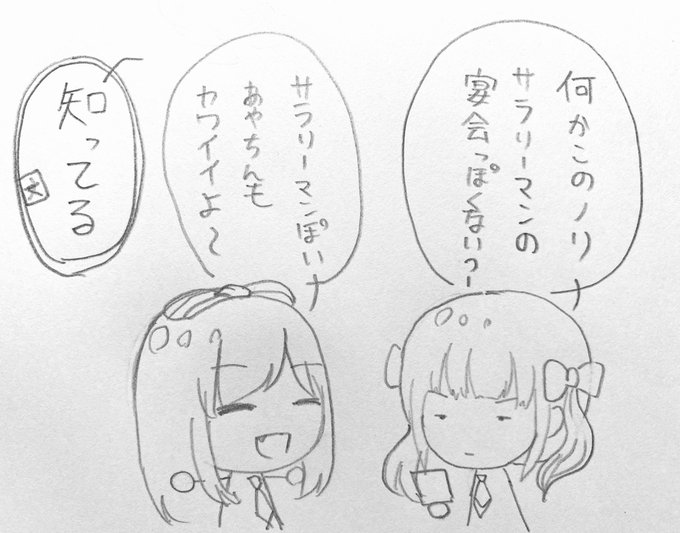 何かこのノリ
サラリーマンの
宴会っぽくないっー
サラリーマンぽい
あやちんも
カワイイよ〜
知ってる